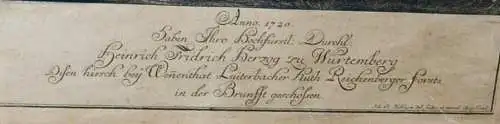 Anno. 1720.
Haben Ihro Hochfürstl. Durchl.
Heinrich Fridrich Herzog zu Würtemberg
Disen hirsch beÿ Winenthal Lauterbacher Huth Reichenberger forsts
in der Brunfft geschossen.